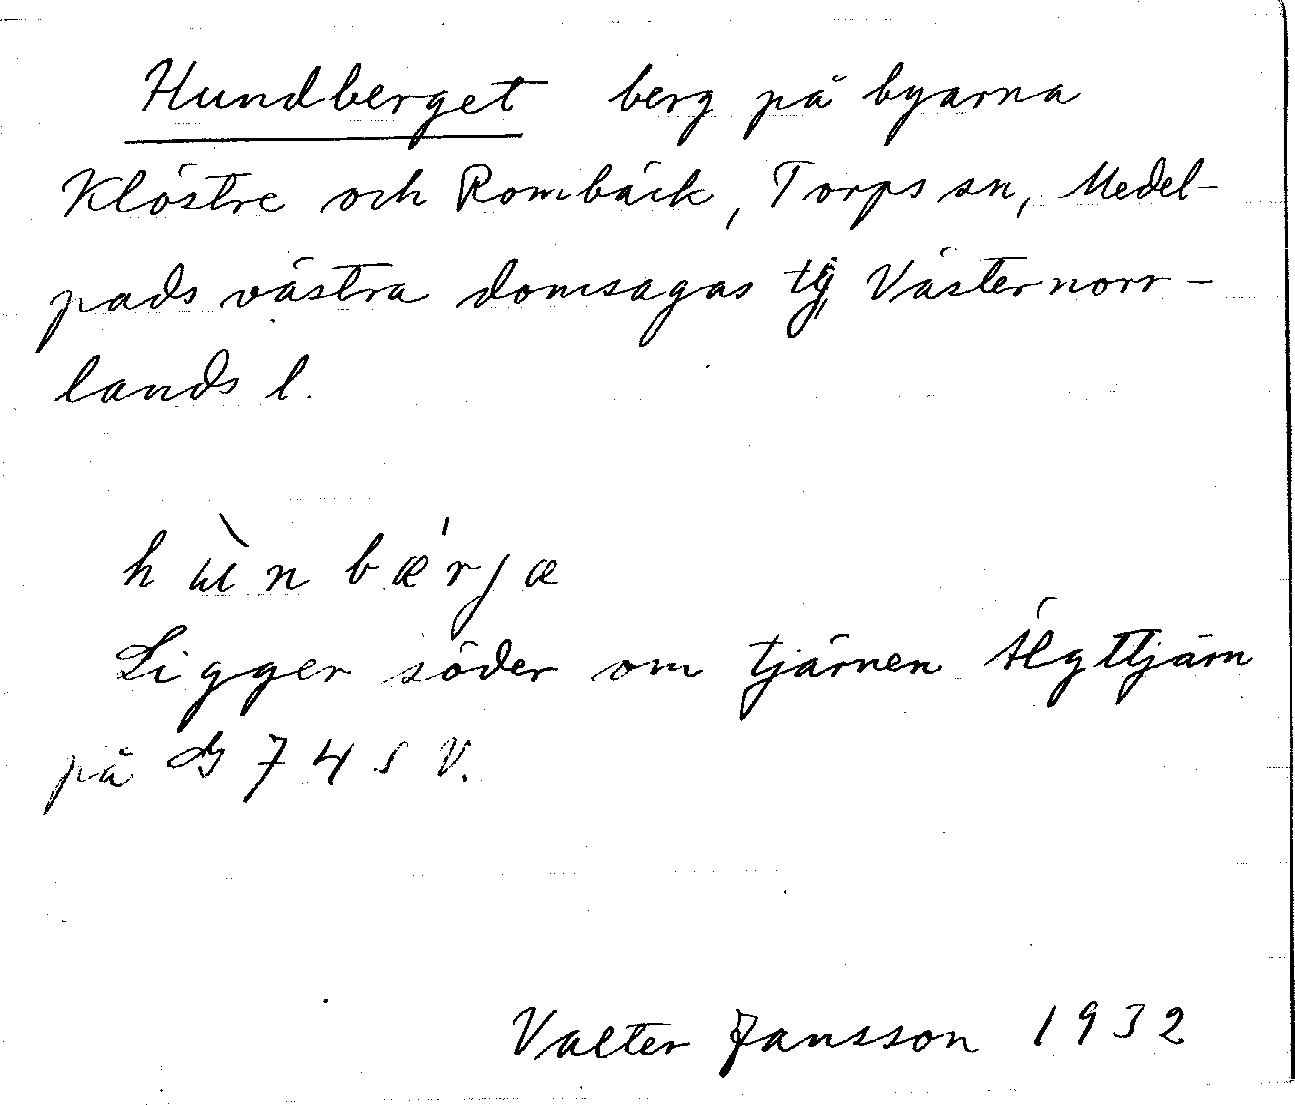 Hundberget berg på byarna
Klöstre och Rombäck, Torps sn, Medel-
pads västra domsagas tg, Västernorr-
lands l.
hùnbǽrjæ
Ligger söder om tjärnen Älgttjärn
på G 74 S V.
Valter Jansson 1932